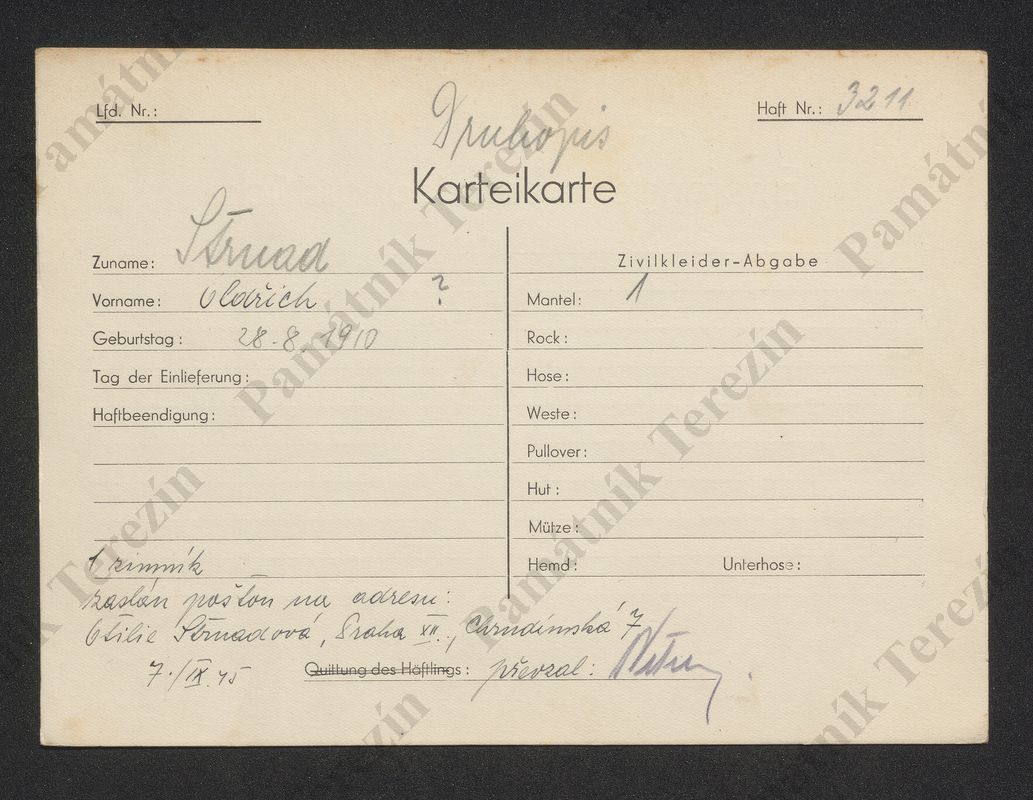 Lfd. Nr.:
Druhopis
Haft Nr.: 3211
Karteikarte
Zuname: Strnad
Vorname: Oldřich ?
Geburtstag: 28.8.1910
Tag der Einlieferung:
Haftbeendigung:
Zivilkleider-Abgabe
Mantel: 1
Rock:
Hose:
Weste:
Pullover:
Hut:
Mütze:
Hemd: Unterhose:
1 zimník
zaslán poštou na adresu:
Otilie Strnadová, Praha XII., Chrudimská 7
7./IX.45 Quittung des Häftlings: převzal:
Památník Terezín